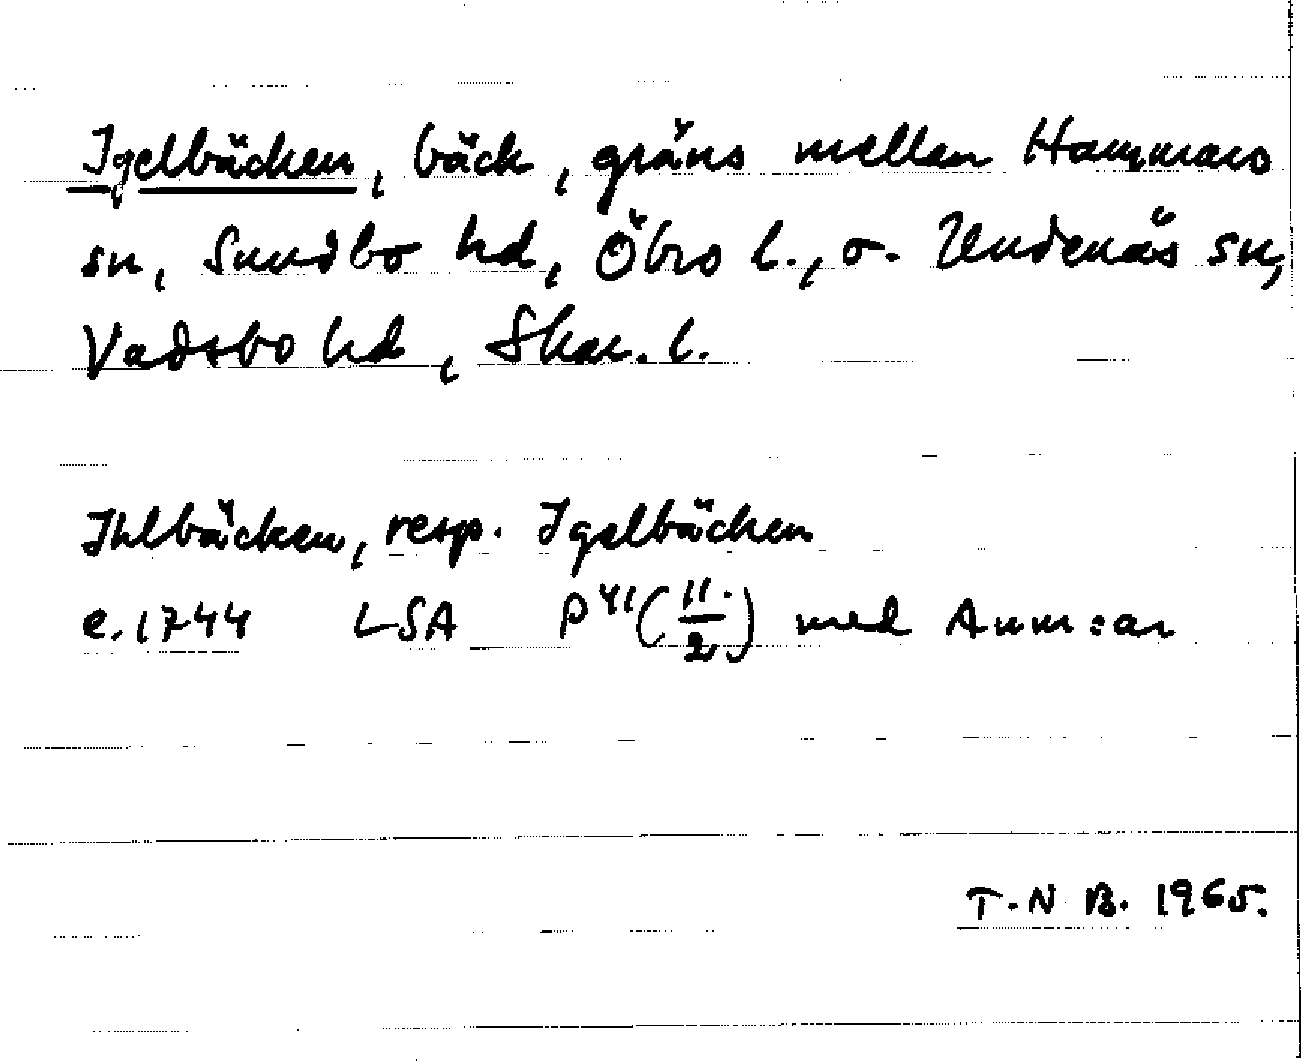 Igelbäcken, bäck, gräns mellan Hammars
sn, Sundbo hd, Öbro l., o. Undenäs sn,
Vadsbo hd, Skar. l.
Ihlbäcken, resp. Igelbäcken
e. 1744 LSA P41 (11./2) med Anm:ar
T.N B. 1965.